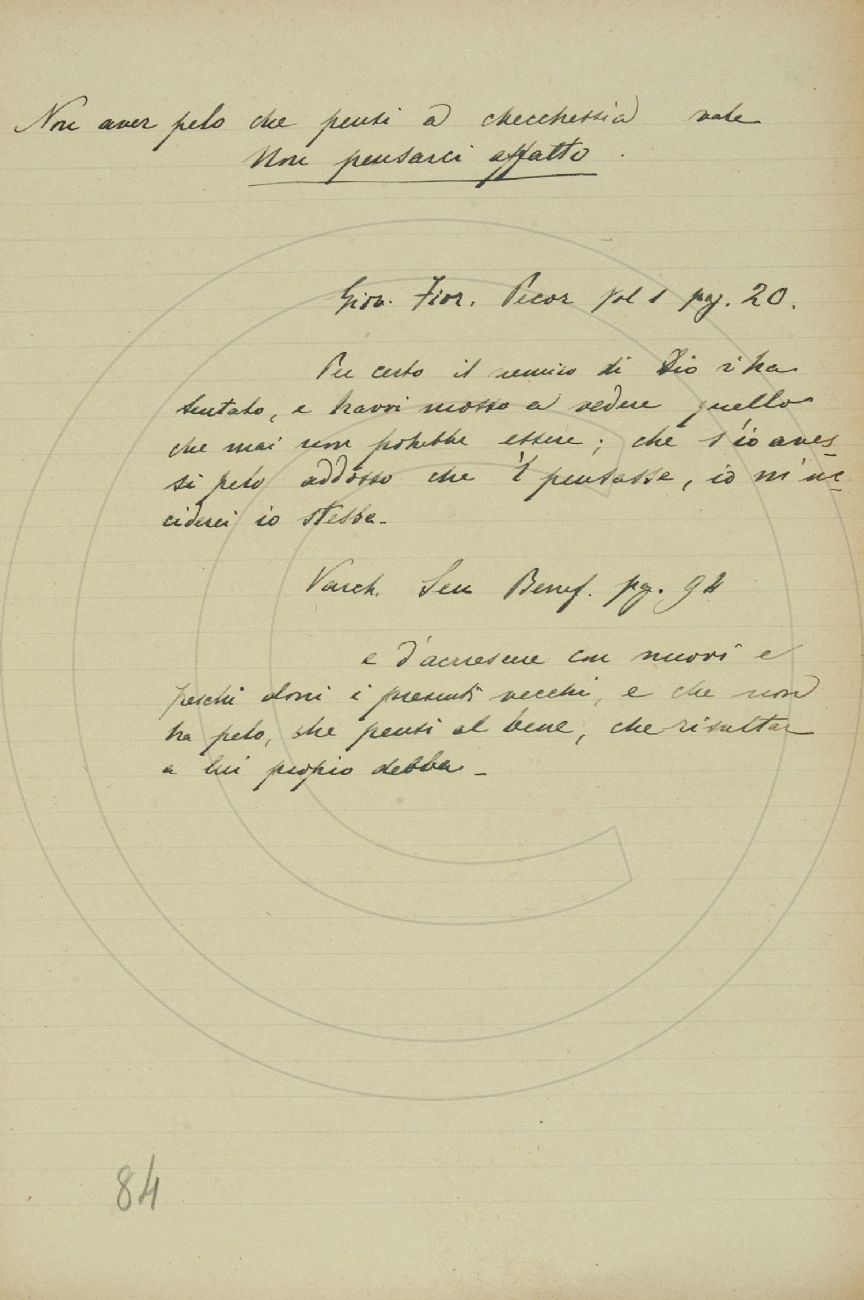 Non aver pelo che pensi a checchessia vale
Non pensarci affatto.
Giov. Fior. Pecor Vol 1 pag. 20.
Per certo il nemico di Dio ti ha
tentato, e havvi mosso a vedere quello
che mai non potrebbe essere; che s'io aves-
si pelo addosso che 'l pensasse, io m'uc-
ciderei io stessa.
Varch. Sen Benef. pg. 94
e d'accrescere con nuovi e
freschi doni i presenti vecchi, e che non
ha pelo, che pensi al bene, che risultar
a lui propio debba -
84